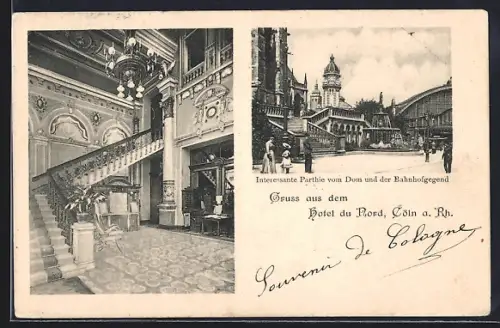 Interessante Parthie vom Dom und der Bahnhofgegend
Gruss aus dem
Hotel du Nord, Cöln a. Rh.
Souvenir de Cologne